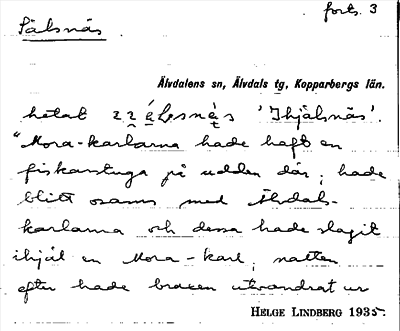 forts. 3
Sälsnäs
Älvdalens sn, Älvdals tg, Kopparbergs län.
hetat 'Ihjälsnäs'.
"Mora-karlarna hade haft en
fiskarstuga på udden där; hade
blitt osams med Älvdals-
karlarna och dessa hade slagit
ihjäl en Mora-karl; natten
efter hade braxen utvandrat ur
HELGE LINDBERG 1935.